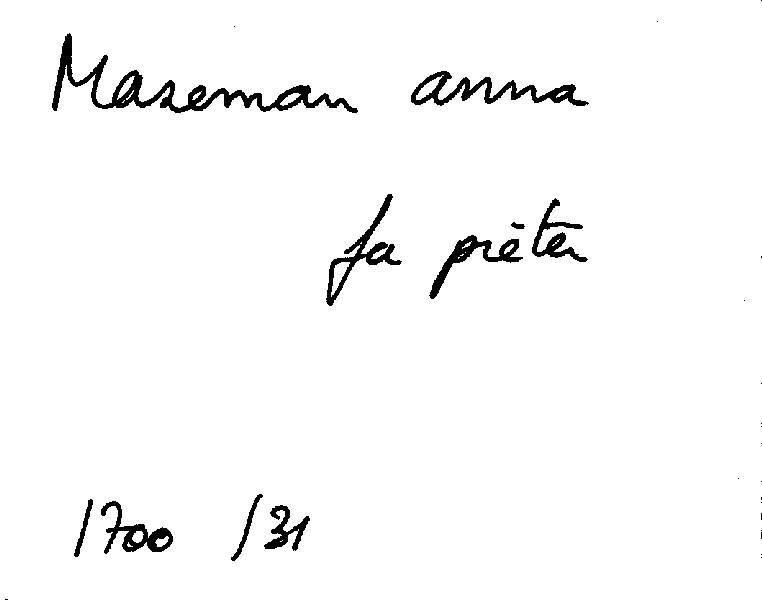 Maseman anna
fa prèter
1700 /31